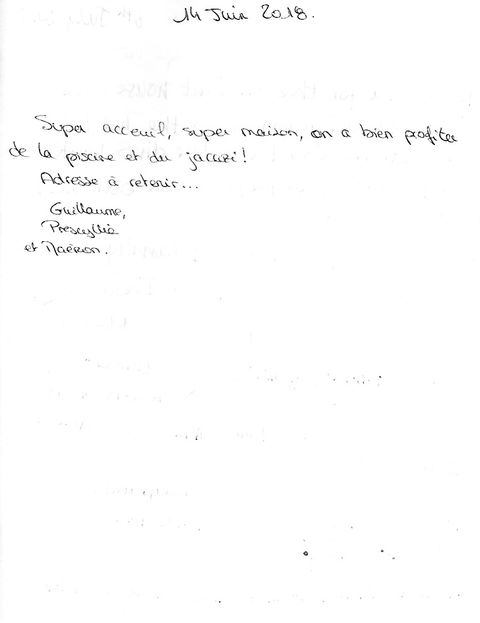 14 Juin 2018.
Super acceuil, super maison, on a bien profiter
de la piscine et du jacuzi!
Adresse à retenir...
Guillaume,
Prescyllia
et Maëron.